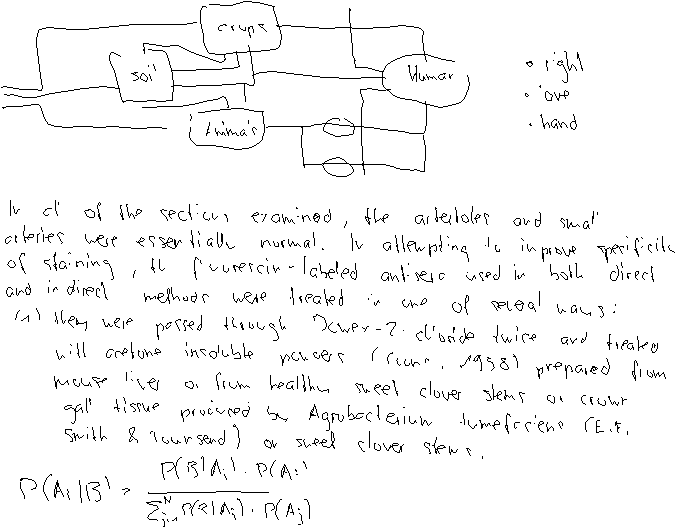 crops
soil
Human
Animals
• right
• love
• hand
In all of the sections examined, the arterioles and small
arteries were essentially normal. In attempting to improve specificity
of staining, the fluorescin-labeled antisera used in both direct
and indirect methods were treated in one of several ways:
(1) They were passed through Dowex-2 chloride twice and treated
with acetone insoluble powers (Coons, 1958) prepared from
mouse liver or from healthy sweet clover stems or crown
gall tissue produced by Agrobacterium tumefaciens (E.F.
Smith & Townsend) or sweet clover stems.
P(Ai|B) = P(B|Ai) · P(Ai) / ∑_{j=1}^N P(B|Aj) · P(Aj)